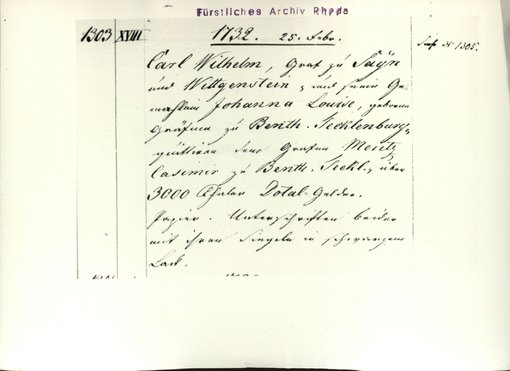 Fürstliches Archiv Rheda
1303 XVIII 1732. 25. Febr.
1305.
Carl Wilhelm, Graf zu Sayn
und Wittgenstein, und seine Ge-
mahlin Johanna Louise, geborene
Gräfinn zu Benth. Tecklenburg,
quittiren dem Grafen Moritz
Casimir zu Benth. Teckl., über
3000 Thaler Dotal-Gelder.
Papier. Unterschriften beider
mit ihren Siegeln in schwarzem
Lack.